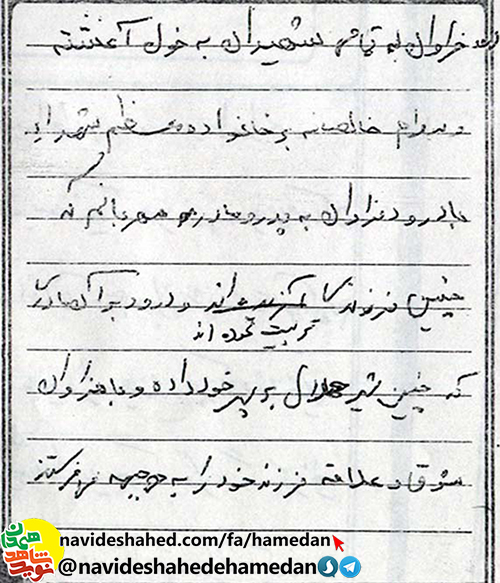 درود فراوان به تمامی شهیدان به خون آغشته
و سلام خالصانه بر خانواده معظم شهداء
با درود فراوان به پدر و مادر مهربانم که
چنین فرزندی را و درود بر آن مادری
تربیت نموده اند
که چنین شیر حلال به پسر خود داده و با هزاران
شوق و علاقه فرزند خود را به جبهه می فرستند
navideshahed.com/fa/hamedan
@navideshahedehamedan
نوید شاهد
همدان